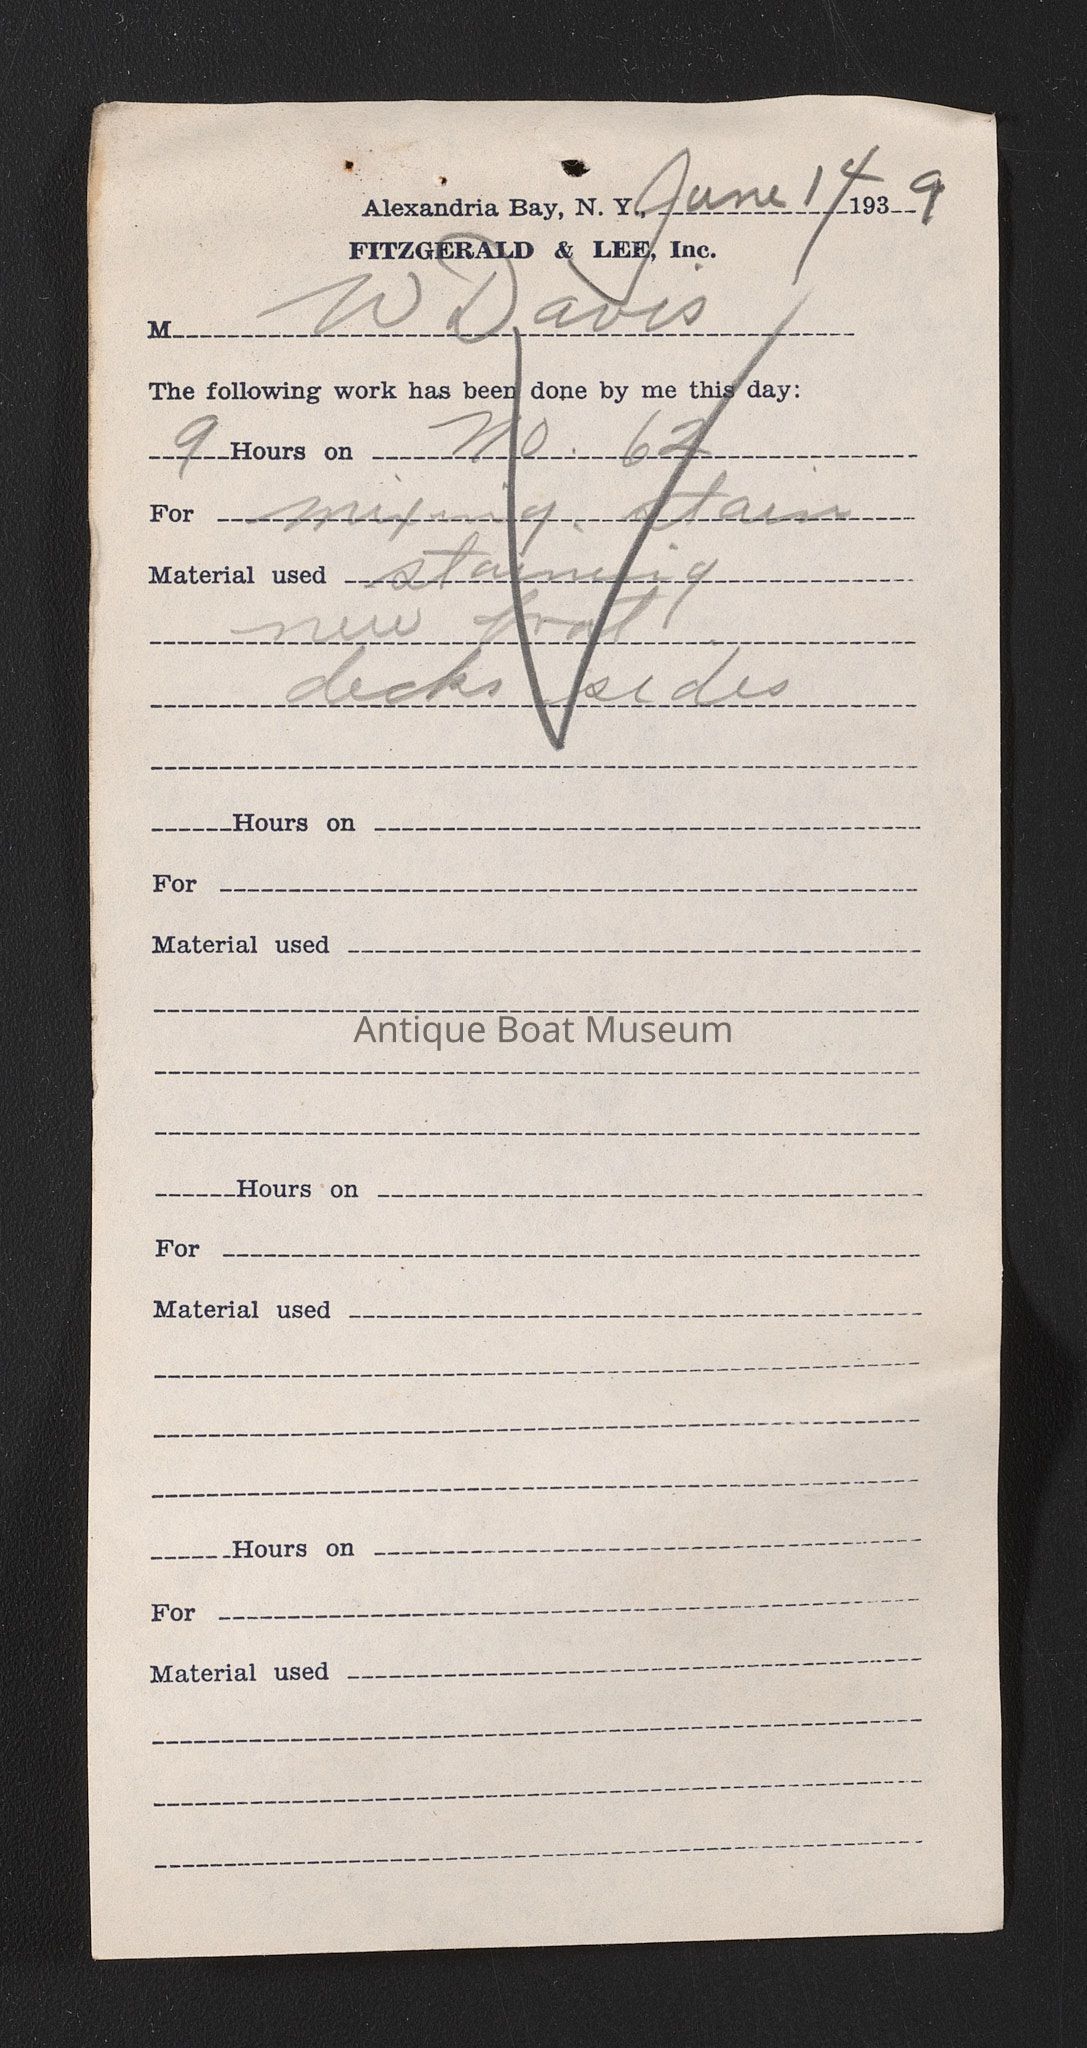 Alexandria Bay, N. Y., June 14 1939
FITZGERALD & LEE, Inc.
M W Davis
The following work has been done by me this day:
9 Hours on No. 62
For mixing. stain
Material used staining
new boat
decks sides
Hours on
For
Material used
Antique Boat Museum
Hours on
For
Material used
Hours on
For
Material used